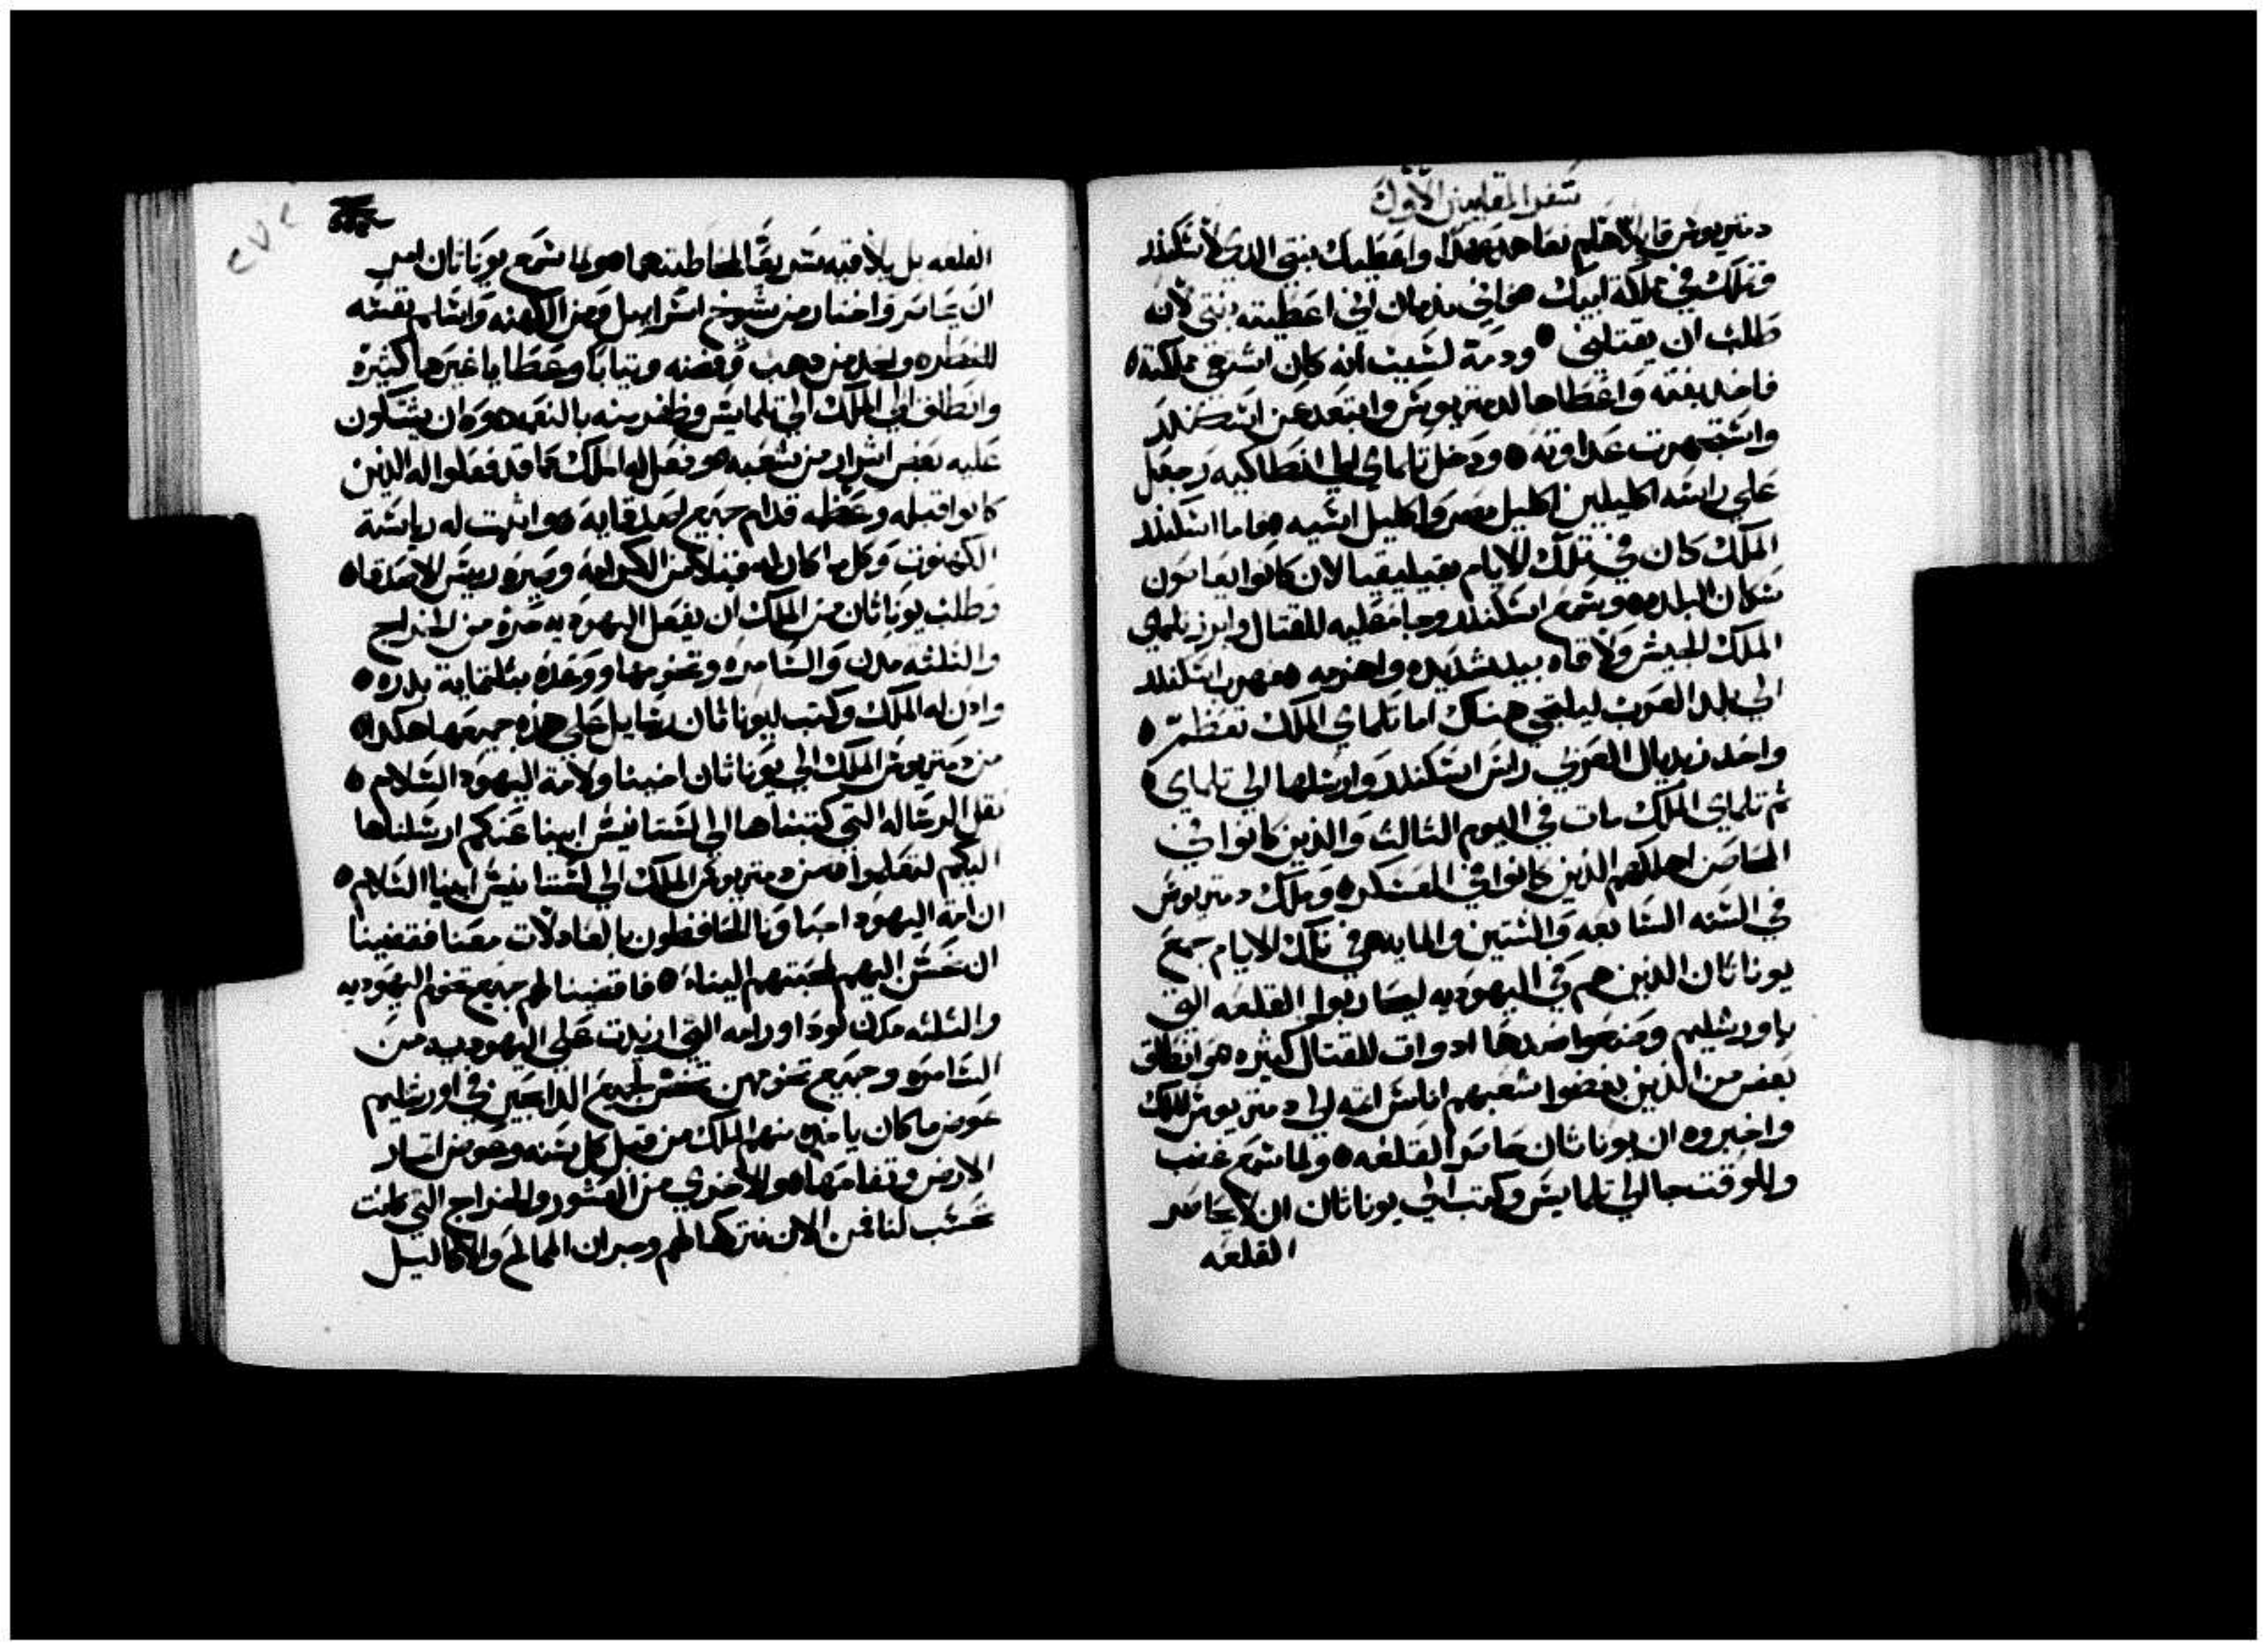 سفر المقابيين الاول
دمتريوس قايلا هلم نعاهد بعهدا واعطيك بنتي الدي لاسكندر
فتملك في مملكة ابيك ه فاني ندمان اني اعطيته بنتي لانه
طلب ان يقتلني ه ودمة لسبب انه كان اشتهي مملكته ه
فاخد بنته واعطاها لدمتريوس وابتعد عن اسكندر
واشتهرت عداوته ه ودخل تلماي الي انطاكيه وجعل
علي راسه اكليلين اكليل مصر واكليل اسيه ه فاما اسكندر
الملك كان في تلك الايام بقيليقيا لان كانوا يعاصون
سكان البلده ه وسمع اسكندر وجا عليه للقتال وابرز تلماي
الملك الجيش ولاقاه بيد شديده واهزمه ه فهرب اسكندر
الي بلد العرب ليلتجي هناك اما تلماي الملك تعظم ه
واخد زبديال العربي راس اسكندر وارسلها الي تلماي ه
ثم تلماي الملك مات في اليوم الثالث والذين كانوا في
المحاصن اهلكهم الذين كانوا في العسكر ه وملك دمتريوس
في السنه السابعه والستين والمايه ه في تلك الايام جمع
يوناثان الذين هم في اليهوديه ليحاربوا القلعه التي
باورشليم وصنعوا ضدها ادوات للقتال كثيره ه وانطلق
بعض من الذين بغضوا شعبهم اناس اثمه الي دمتريوس الملك
واخبروه ان يوناثان حاصر القلعه ه ولما سمع غضب
وللوقت جا الي تلمايس وكتب الي يوناثان ان لا يحاصر
القلعه
٢٧٢
القلعه بل يلاقيه سريعا لمخاطبتهما ه ولما سمع يوناثان امر
ان يحاصر واختار من شيوخ اسرايل ومن الكهنه واسلم نفسه
للخطر ه واخد من دهب وفضه وثيابا وعطايا غيرها كثيره
وانطلق الي الملك الي تلمايس وظفر منه بالنعمه ه وان يشتكون
عليه بعض اشرار من شعبه ه وفعل له الملك كما قد فعلوا له الذين
كانوا قبله وعظمه قدام جميع اصدقايه ه واثبت له رياسة
الكهنوت وكل ما كان له قبلا من الكرامه وصيره رييس الاصدقا ه
وطلب يوناثان من الملك ان يفعل اليهوديه حرة من الخراج
والثلثه مدن والسامره وتخومها ووعده بثلثمايه بدره ه
وادن له الملك وكتب ليوناثان رسايل علي هذه جميعها هكدا ه
من دمتريوس الملك الي يوناثان اخينا ولامة اليهود السلام ه
نقل الرساله التي كتبناها الي لستانيس ابينا عنكم ارسلناها
اليكم لتعلموا ه من دمتريوس الملك الي لستانيس ابينا السلام ه
ان امة اليهود احبا ونا الحافظون بالعادلات معنا فقضينا
ان نحسن اليهم لمحبتهم الينا ه فاقضينا لهم جميع تخوم اليهوديه
والثلثه مدن لودا ورامه التي ازيدت علي اليهوديه من
السامره وجميع تخومهن لجميع الدابحين في اورشليم
عوض ما كان ياخده منهم الملك من قبل كل سنه وعوض اثمار
الارض وتفاحها ه والاخري من العشور والخراج التي كانت
تحسب لنا فمن الان نتركها لهم وجيران الممالح والاكاليل